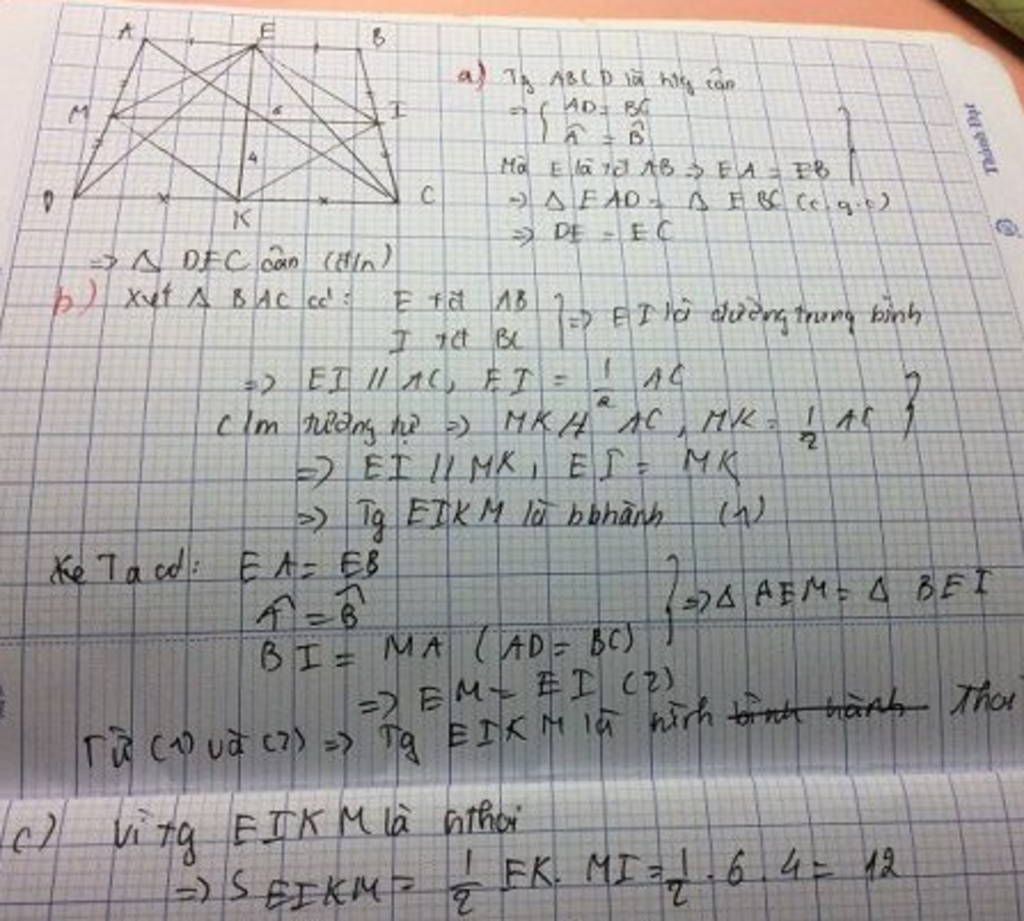 A E B
M 6 I
4
D K C
a) Tg ABCD là htg cân
=> { AD = BC
Â = B̂
Mà E là tđ AB => EA = EB
=> Δ EAD = Δ EBC (c.g.c)
=> DE = EC
=> Δ DEC cân (đ/n)
b) Xét Δ BAC có: E tđ AB
I tđ BC } => EI là đường trung bình
=> EI // AC, EI = 1/2 AC
C/m tương tự => MK // AC, MK = 1/2 AC
=> EI // MK, EI = MK
=> Tg EIKM là hbhành (1)
Xé Ta có: EA = EB
Â = B̂ } => Δ AEM = Δ BEI
BI = MA (AD = BC)
=> EM = EI (2)
Từ (1) và (2) => Tg EIKM là hình bình hành Thoi
c) Vì tg EIKM là hthoi
=> S EIKM = 1/2 EK. MI = 1/2 . 6 . 4 = 12
Thành Đạt